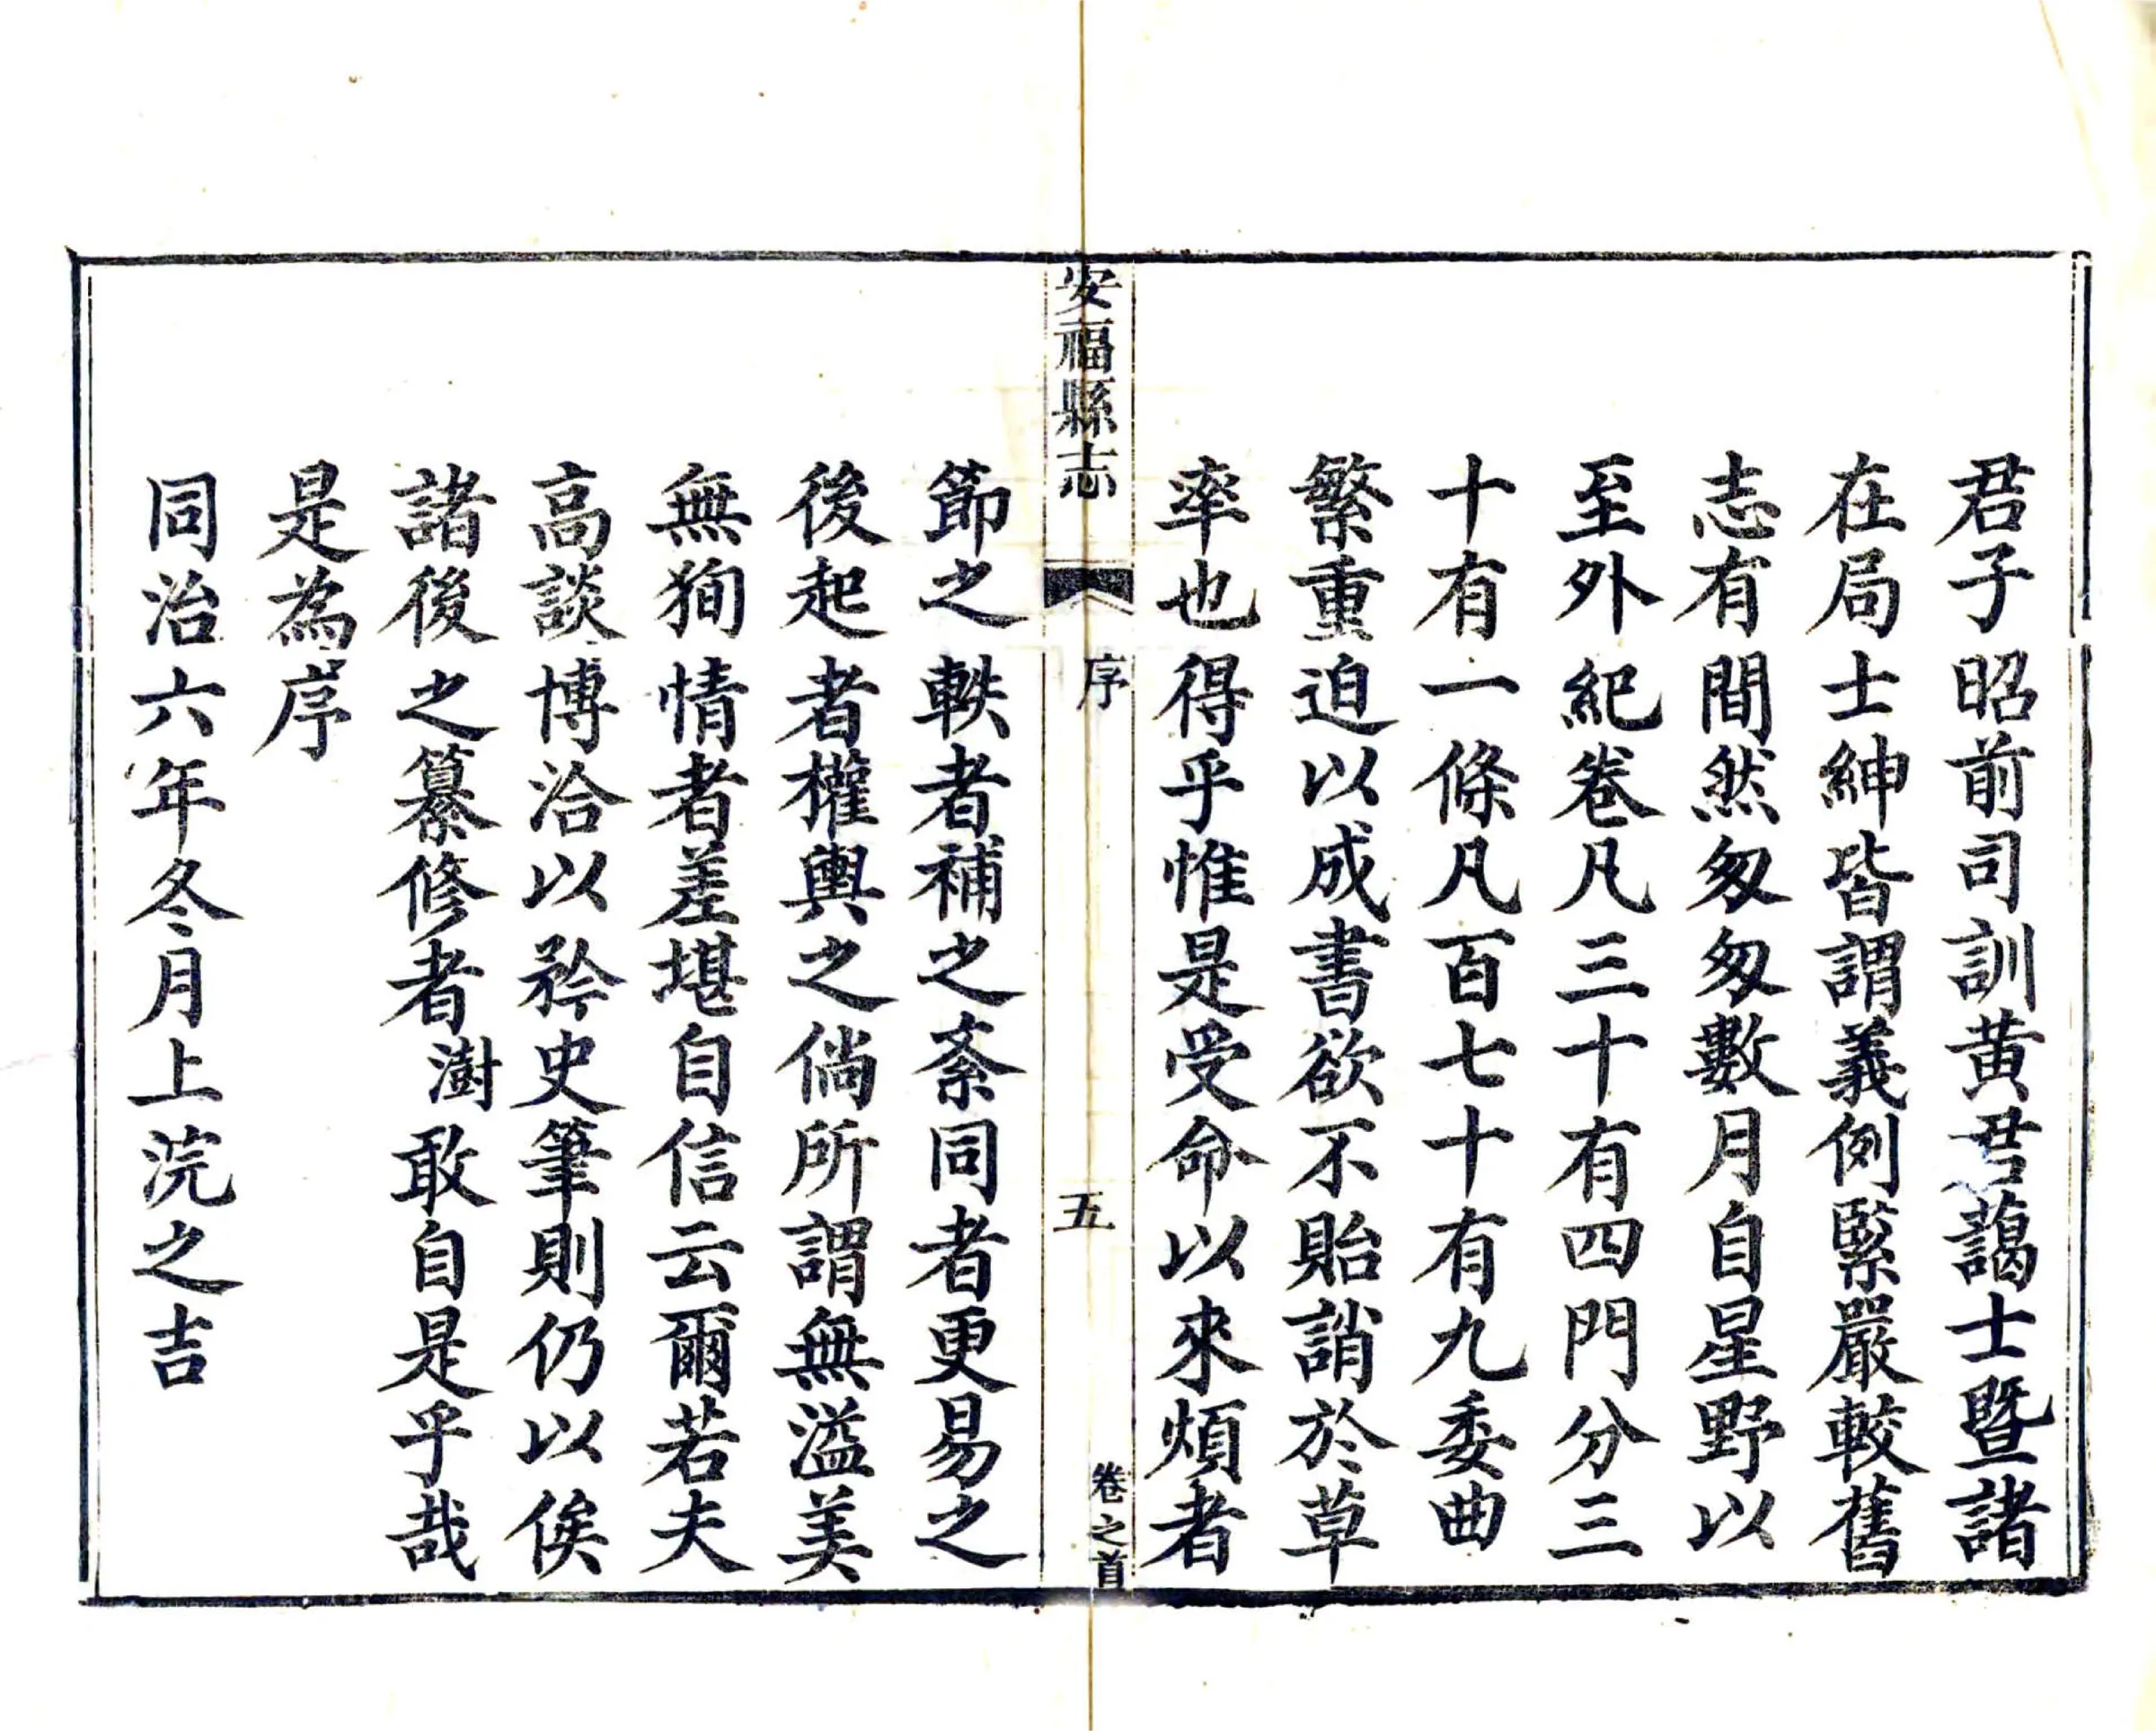 君子昭前司訓黄君藹士暨諸
在局士紳皆謂義例緊嚴較舊
志有間然匆匆數月自星野以
至外紀卷凡三十有四門分三
十有一條凡百七十有九委曲
繁重迫以成書欲不貽誚於草
率也得乎惟是受命以來煩者
安福縣志
序
五
卷之首
節之軼者補之紊同者更易之
後起者權輿之倘所謂無溢美
無狥情者差堪自信云爾若夫
高談博洽以矜史筆則仍以俟
諸後之纂修者澍敢自是乎哉
是為序
同治六年冬月上浣之吉